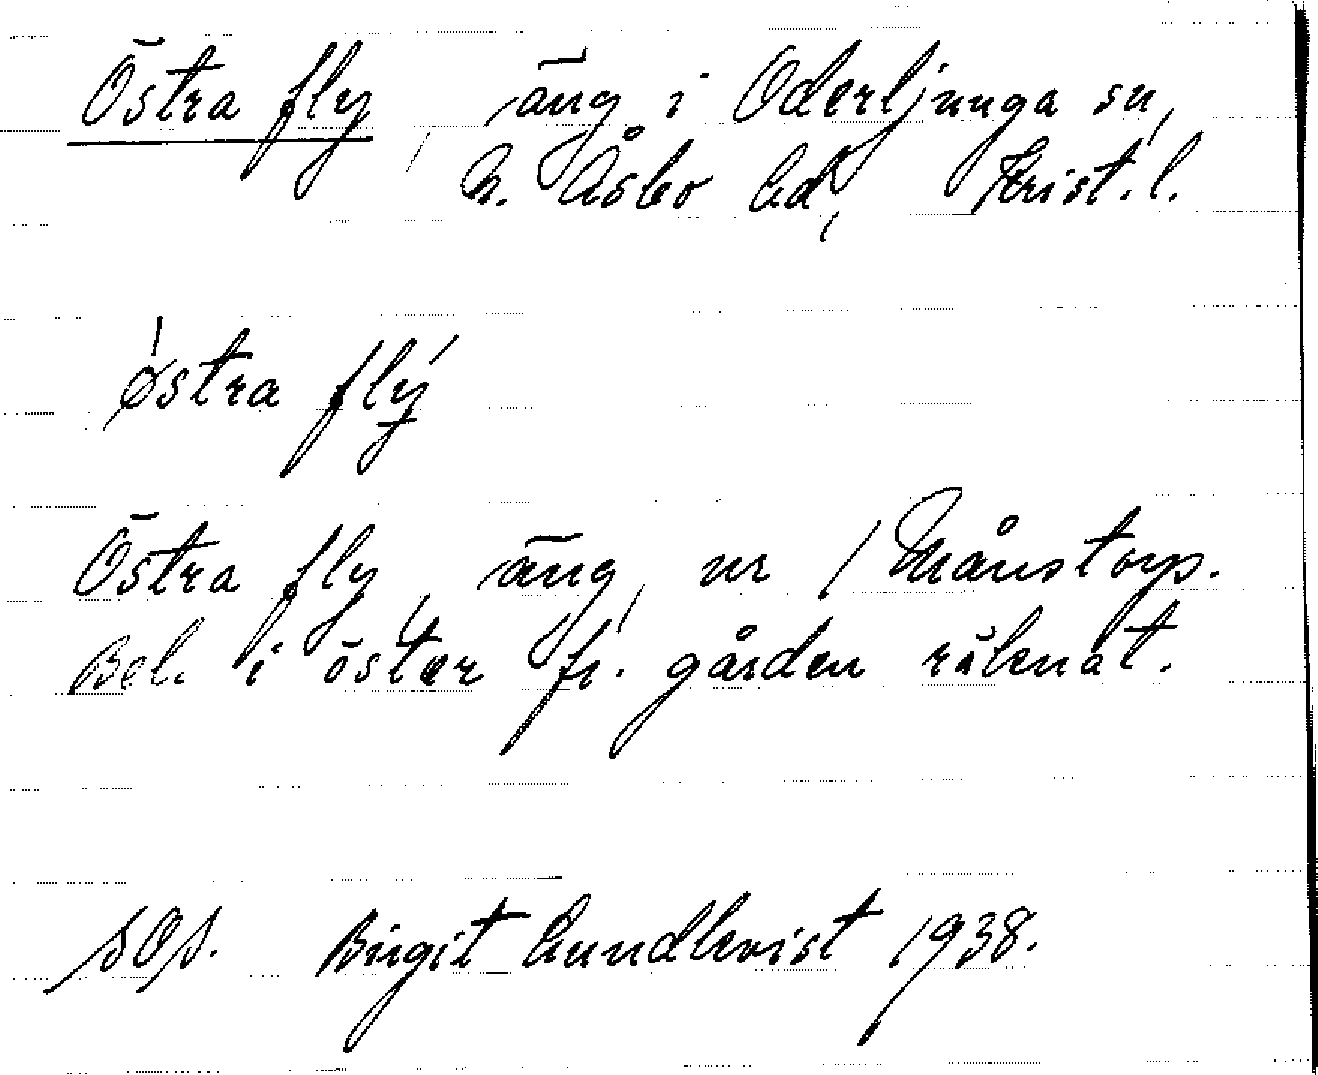 Östra fly, äng i Oderljunga sn,
N. Åsbo hd, Krist. l.
østra flý
Östra fly, äng, nr 1 Månstorp.
Bel. i öster fr. gården räknat.
sOs. Birgit Lundkvist 1938.